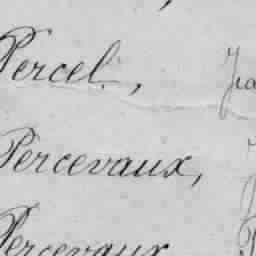 Percel,
Percevaux,
Percevaux